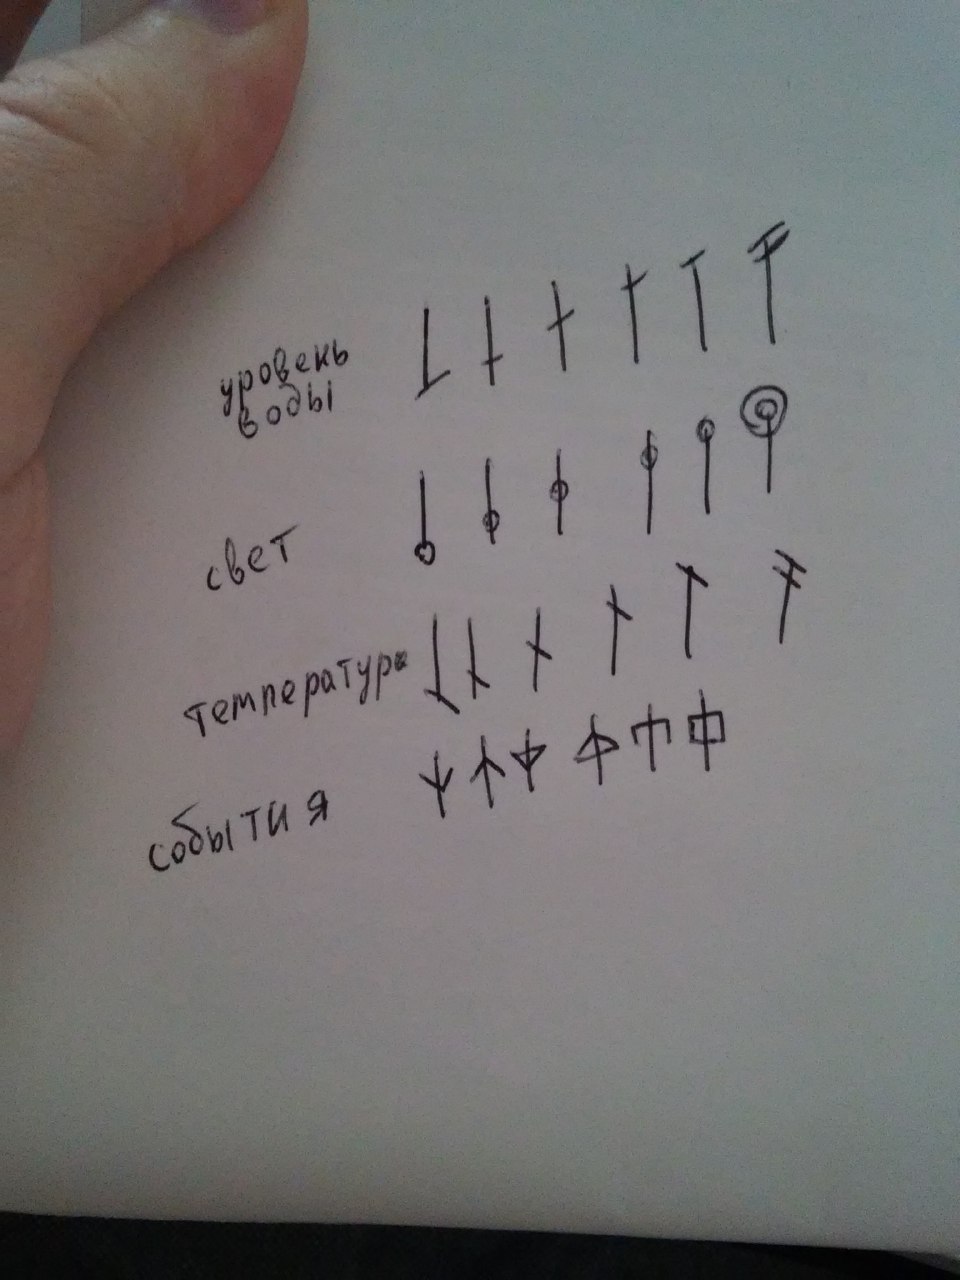 уровень
воды
свет
температура
события